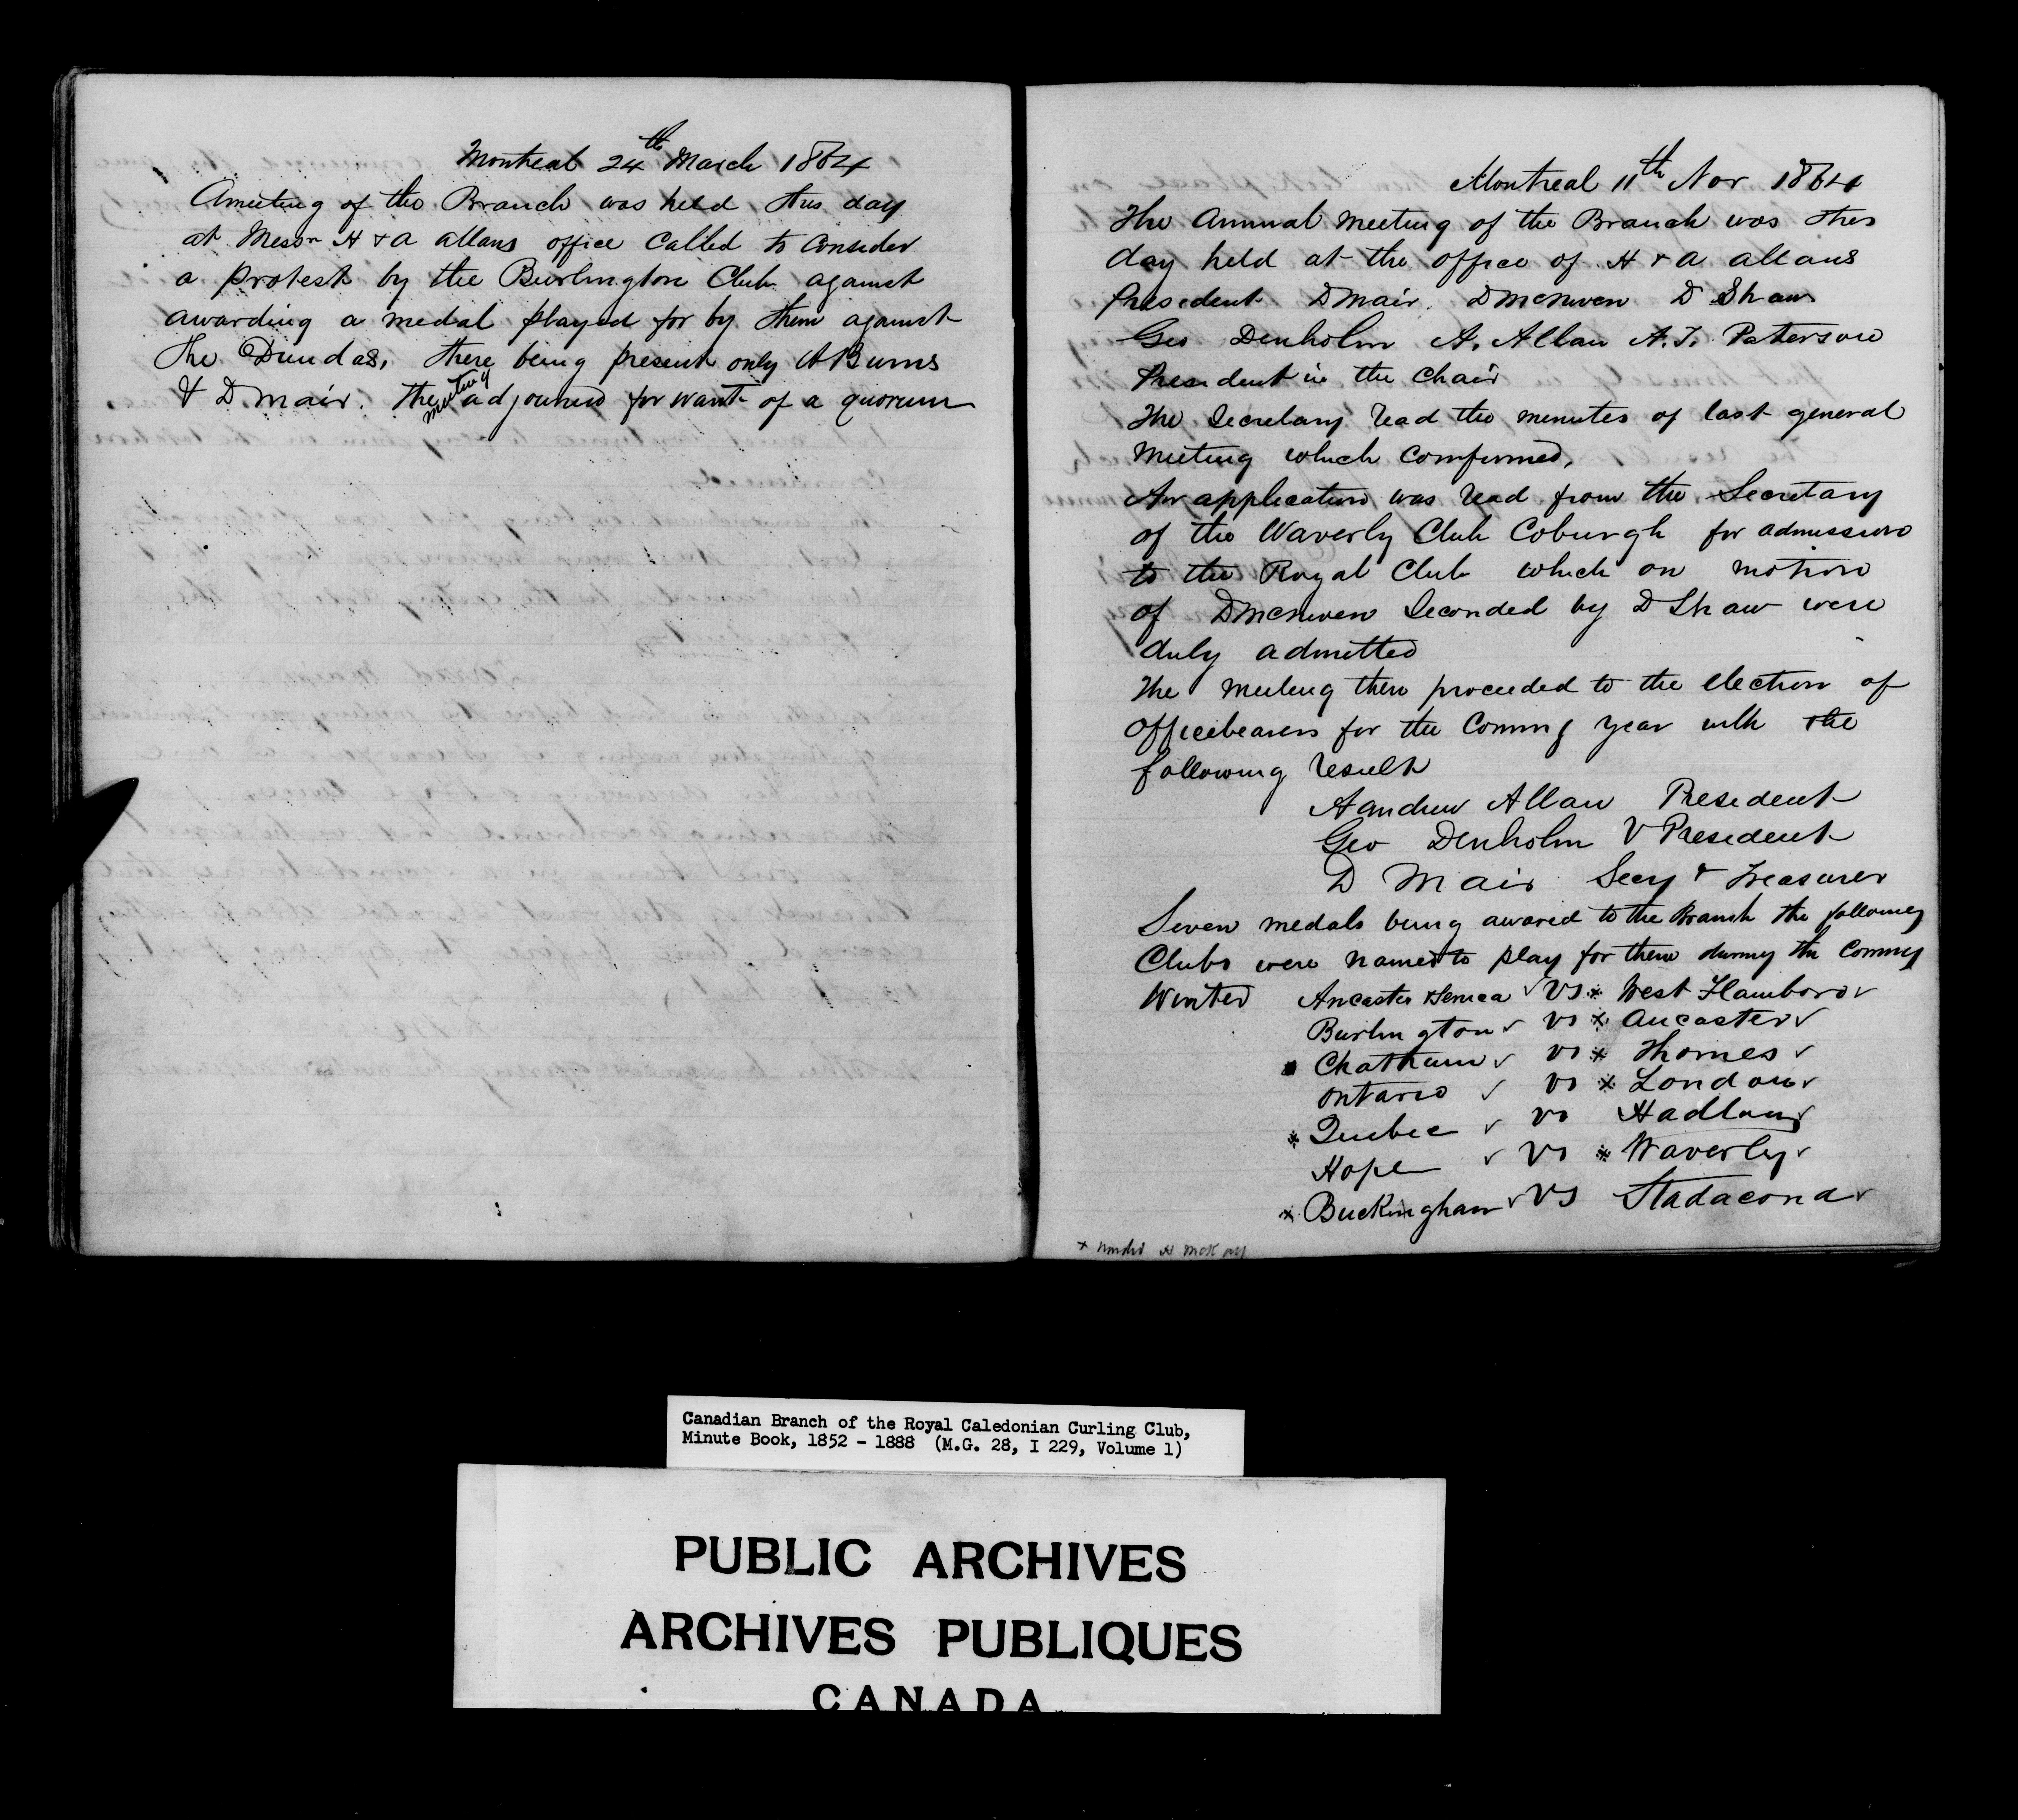 Montreal 24th March 1864
A meeting of the Branch was held this day
at Messrs H & A Allans office called to consider
a protest by the Burlington Club against
awarding a medal played for by them against
The Dundas, there being present only A Burns
& D Mair. The meeting adjourned for want of a quorum
Montreal 11th Nov 1864
The Annual Meeting of the Branch was this
day held at the office of H & A Allans
President D Mair D McNiven D Shaw
Geo Denholm A. Allan A. T. Paterson
President in the Chair
The Secretary read the minutes of last general
Meeting which comfirmed,
An application was read from the Secretary
of the Waverly Club Coburgh for admission
to the Royal Club which on motion
of D McNiven Seconded by D Shaw were
duly admitted
The Meeting then proceeded to the election of
Officebearers for the Coming Year with the
following Result
Aandrew Allan President
Geo Denholm V President
D Mair Secy & Treasurer
Seven medals being awared to the Branch the following
Clubs were named to play for them during the Coming
Winter Ancaster & Seneca ✓ vs x West Flamboro ✓
Burlington ✓ vs x Ancaster ✓
x Chatham ✓ vs x Thames ✓
Ontario ✓ vs x London ✓
x Quebec ✓ vs Hadlow ✓
Hope ✓ vs x Waverly ✓
x Buckingham ✓ vs Stadacona ✓
x H McKay
Canadian Branch of the Royal Caledonian Curling Club,
Minute Book, 1852 - 1888 (M.G. 28, I 229, Volume 1)
PUBLIC ARCHIVES
ARCHIVES PUBLIQUES
CANADA